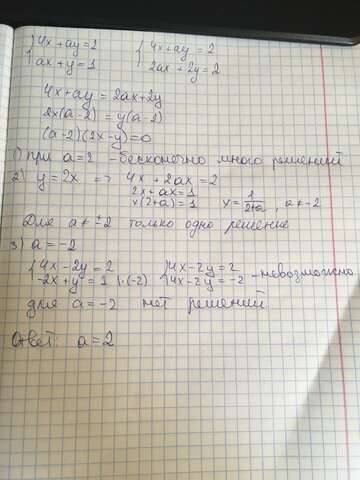 {4x+ay=2 {4x+ay=2
{ax+y=1 {2ax+2y=2
4x+ay=2ax+2y
2x(a-2)=y(a-2)
(a-2)(2x-y)=0
1) при a=2 - бесконечно много решений
2) y=2x => 4x+2ax=2
2x+ax=1
x(2+a)=1 x=1/(2+a), a≠-2
Для a≠±2 только одно решение
3) a=-2
{4x-2y=2 {4x-2y=2 - невозможно
{-2x+y=1 |·(-2) {4x-2y=-2
для a=-2 нет решений
Ответ: a=2